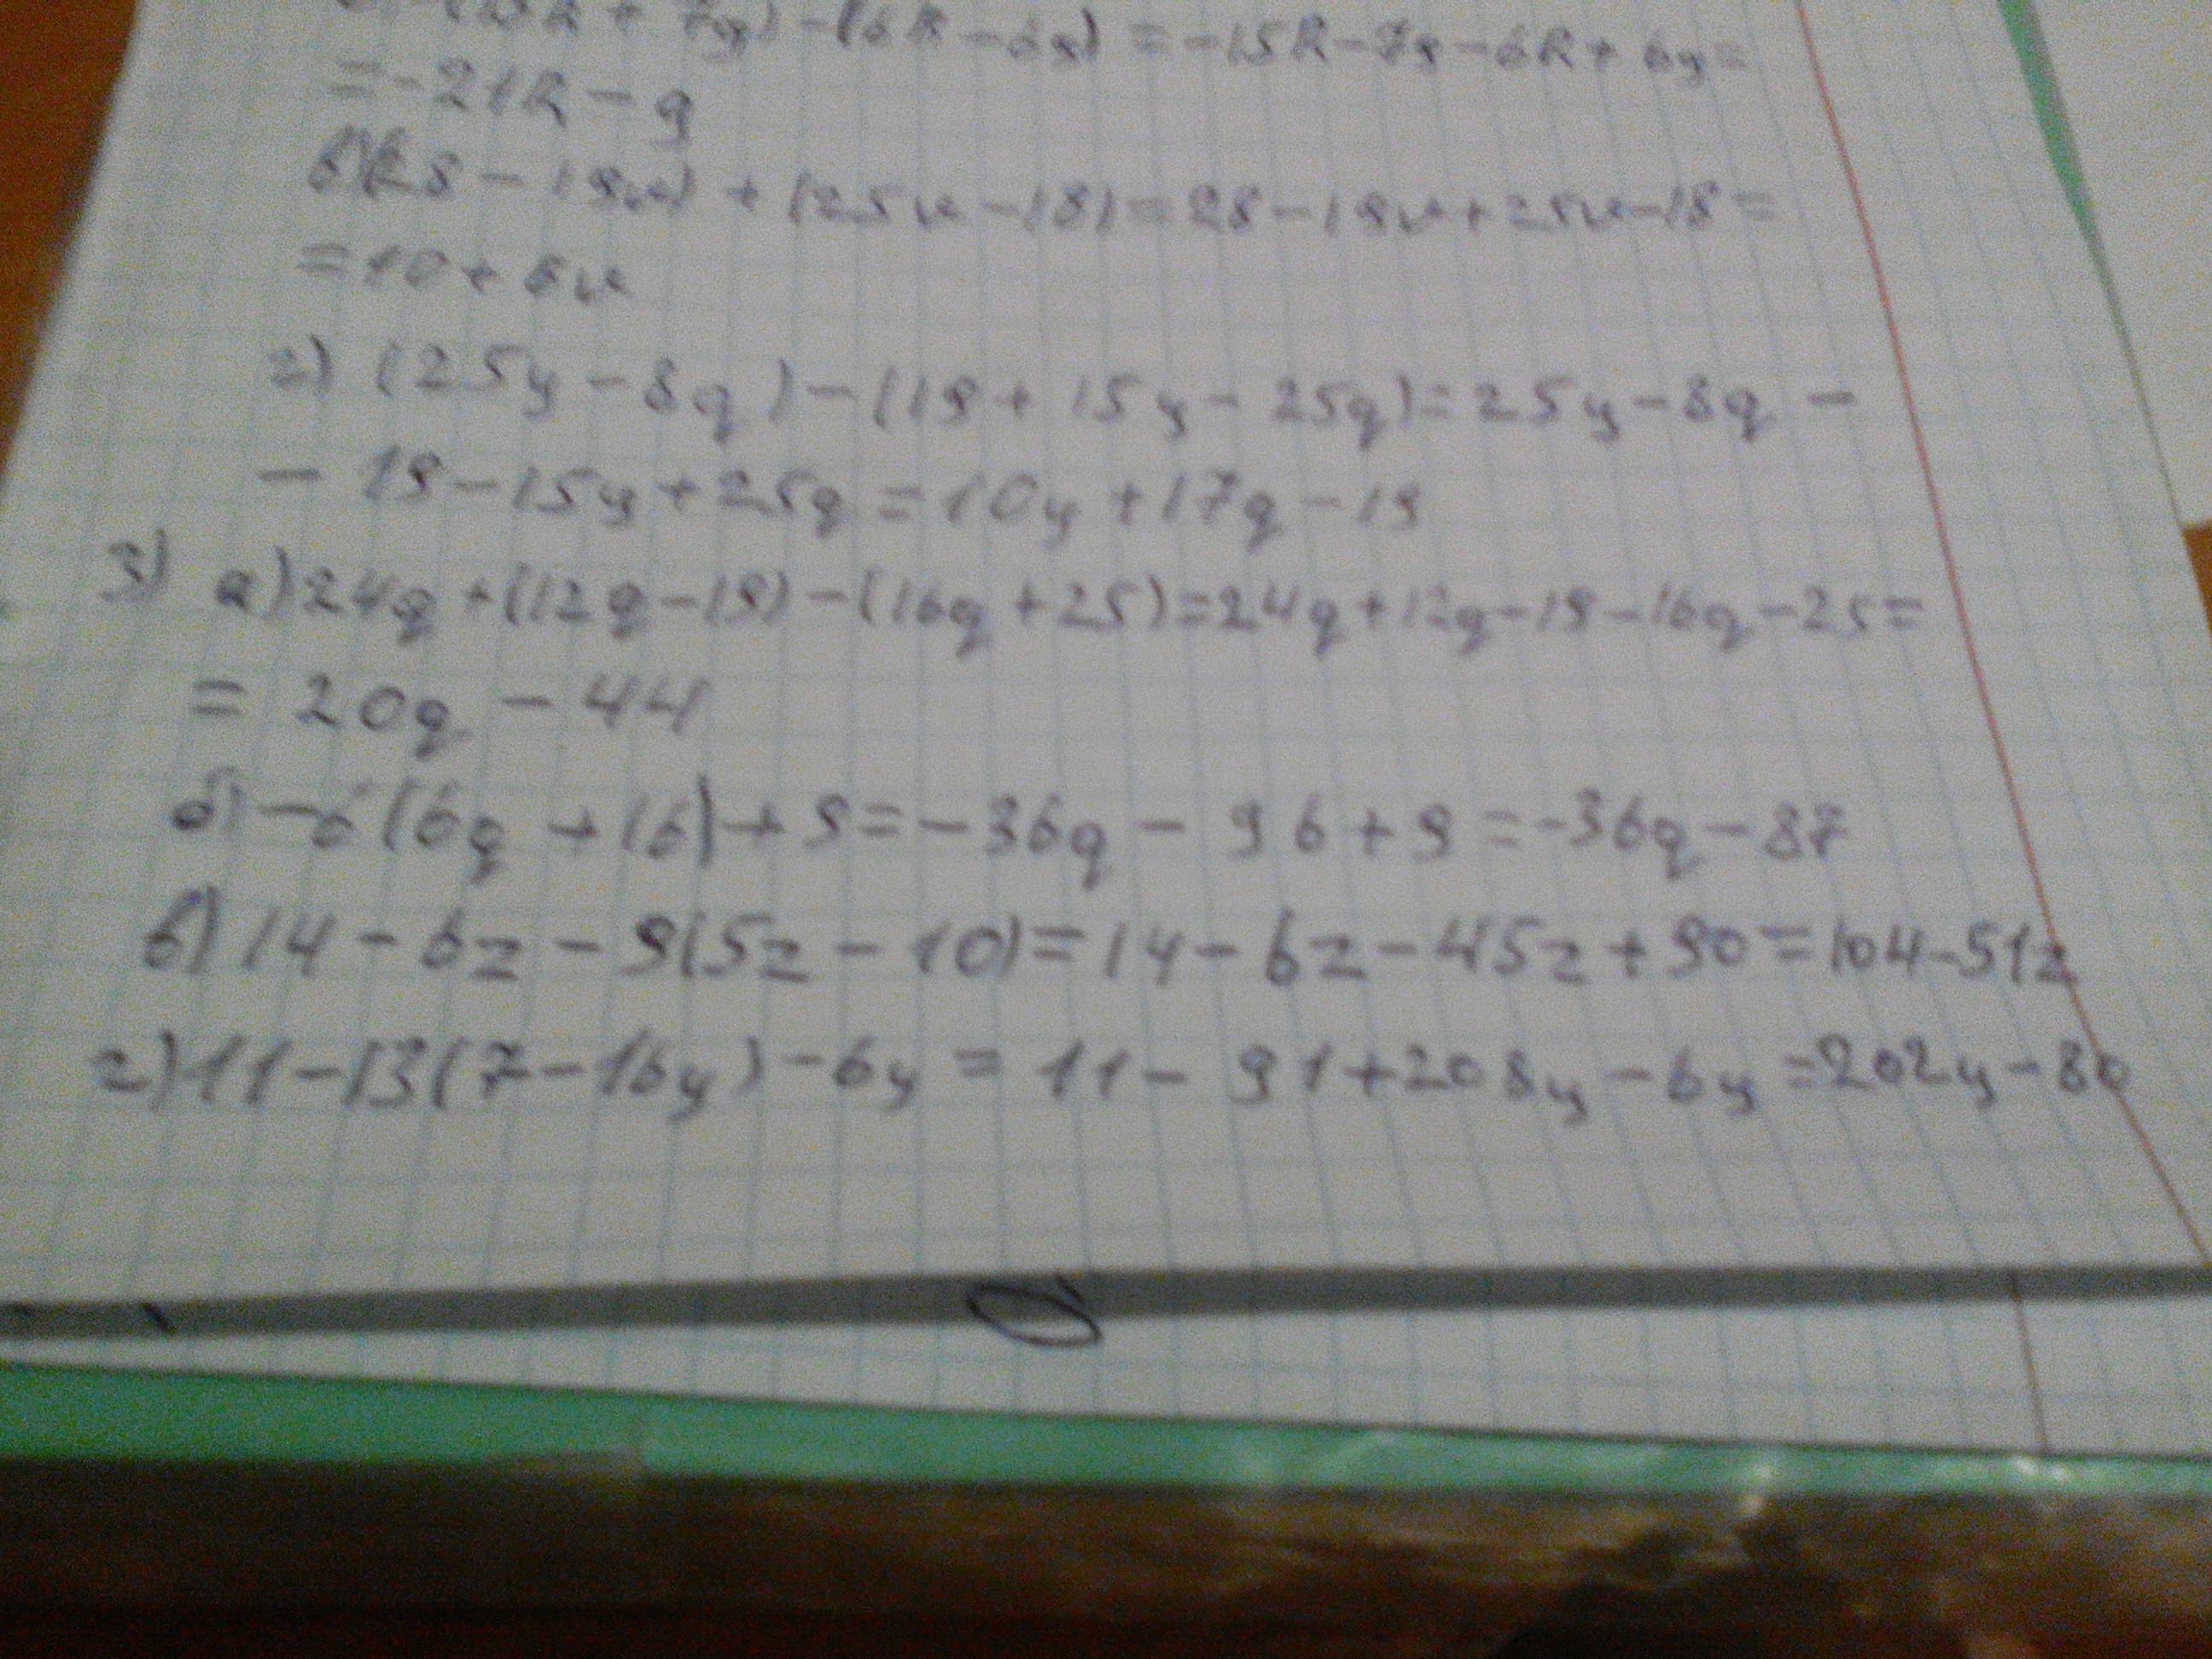 -(15k + 7y) - (6k - 6y) = -15k - 7y - 6k + 6y =
= -21k - y
в) (28 - 19v) + (25v - 18) = 28 - 19v + 25v - 18 =
= 10 + 6v
г) (25y - 8q) - (19 + 15y - 25q) = 25y - 8q -
- 19 - 15y + 25q = 10y + 17q - 19
3) а) 24q + (12q - 19) - (16q + 25) = 24q + 12q - 19 - 16q - 25 =
= 20q - 44
б) -6(6q + 16) + 9 = -36q - 96 + 9 = -36q - 87
в) 14 - 6z - 9(5z - 10) = 14 - 6z - 45z + 90 = 104 - 51z
г) 11 - 13(7 - 16y) - 6y = 11 - 91 + 208y - 6y = 202y - 80